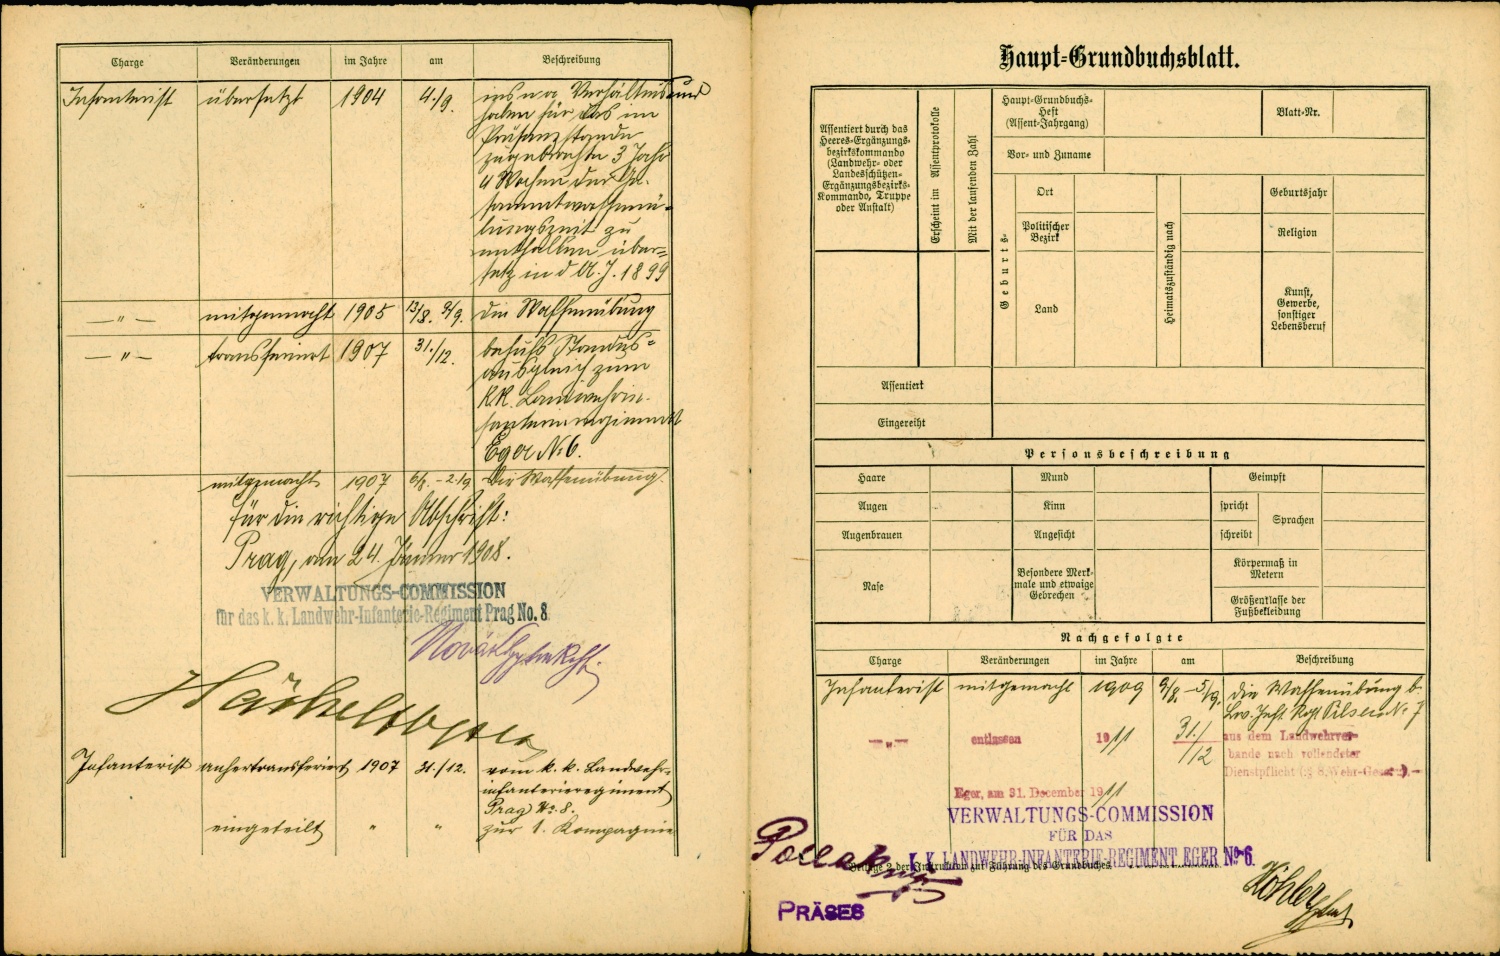 Charge Veränderungen im Jahre am Beschreibung
Infanterist übersetzt 1904 4./9. ins n. a. Verhältnis und
haben für das im
Präsenzstande
zugebrachte 3 Jahr
4 Wochen der Ge-
sammtwaffenü-
bungszeit zu
entfallen über-
setz in d A. J. 1899
— " — mitgemacht 1905 13/8. 9/9. die Waffenübung
— " — transferiert 1907 31./12. behufs Standes-
ausgleich zum
k.k. Landwehrin-
fanterieregiment
Eger N. 6.
mitgemacht 1907 6/8. – 2/9 die Waffenübung.
für die richtige Abschrift:
Prag, am 24. Jänner 1908.
VERWALTUNGS-COMMISSION
für das k. k. Landwehr-Infanterie-Regiment Prag No. 8
Infanterist anhertransferiert 1907 31./12. vom k. k. Landwehr-
infanterieregiment
Prag No. 8.
eingeteilt " " zur 1. Kompagnie
Haupt-Grundbuchsblatt.
Assentiert durch das
Heeres-Ergänzungs-
bezirkskommando
(Landwehr- oder
Landesschützen-
Ergänzungsbezirks-
Kommando, Truppe
oder Anstalt)
Erscheint im Assentprotokolle
Mit der laufenden Zahl
Haupt-Grundbuchs-
Heft
(Assent-Jahrgang)
Blatt-Nr.
Vor- und Zuname
Geburts-
Ort
Politischer
Bezirk
Land
Heimatszuständig nach
Geburtsjahr
Religion
Kunst,
Gewerbe,
sonstiger
Lebensberuf
Assentiert
Eingereiht
Personsbeschreibung
Haare Mund Geimpft
Augen Kinn spricht Sprachen
Augenbrauen Angesicht schreibt
Nase
Besondere Merk-
male und etwaige
Gebrechen
Körpermaß in
Metern
Größenklasse der
Fußbekleidung
Nachgefolgte
Charge Veränderungen im Jahre am Beschreibung
Infanterist mitgemacht 1909 9/8. – 5/9. die Waffenübung b.
Lw. Inft. Rgt Pilsen No 7
— " — entlassen 1911 31./12 aus dem Landwehrver-
bande nach vollendeter
Dienstpflicht (§ 8 Wehr-Gesetz).—
Eger, am 31. December 1911
VERWALTUNGS-COMMISSION
FÜR DAS
K. K. LANDWEHR-INFANTERIE-REGIMENT EGER No 6.
Pollak
Beilage 2 der Instruktion zur Führung des Grundbuches.
PRÄSES
Köhler